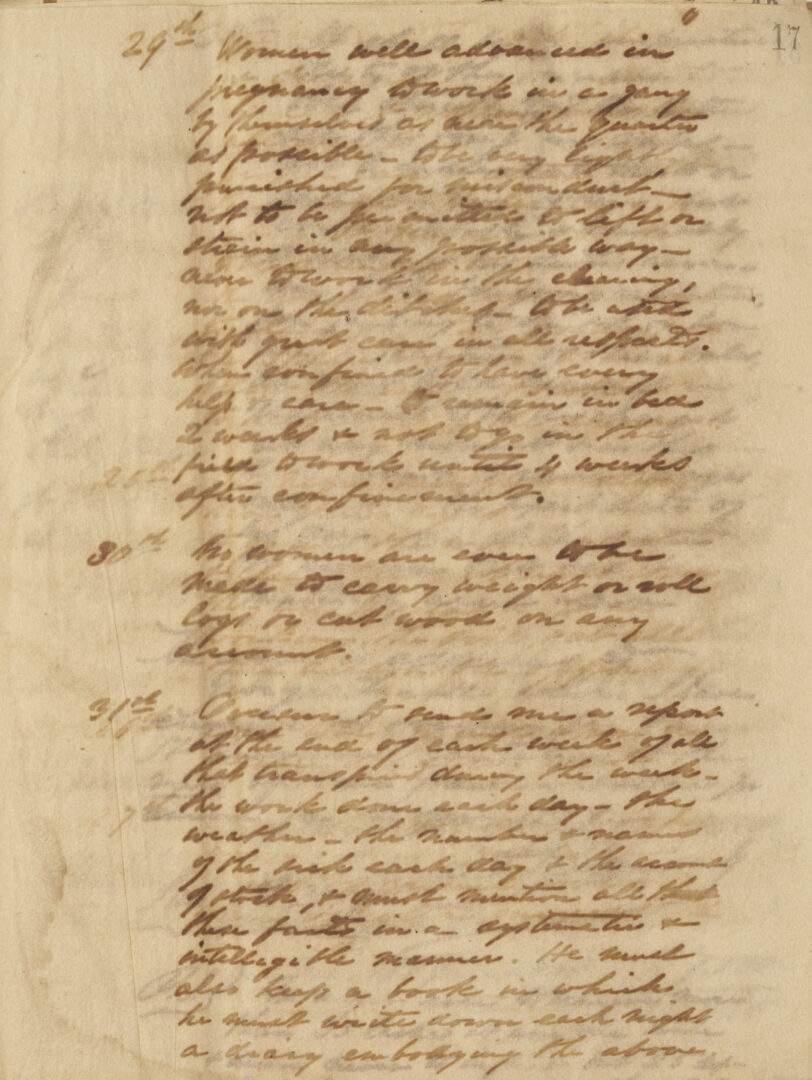 17
29th Women well advanced in
pregnancy to work in a gang
by themselves as near the Quarter
as possible - to be very lightly
punished for misconduct -
not to be permitted to lift or
strain in any possible way -
never to work in the clearing,
nor on the ditches - to be used
with great care in all respects.
When confined to have every
help & care - to remain in bed
2 weeks & not to go in the
field to work until 4 weeks
after confinement.
30th No women are ever to be
made to carry weight or roll
logs or cut wood on any
account.
31st Overseer to send me a report
at the end of each week of all
that transpired during the week -
the work done each day - the
weather - the number & names
of the sick each day & the account
of stock, & must mention all
these facts in a systematic &
intelligible manner. He must
also keep a book in which
he must write down each night
a diary embodying the above